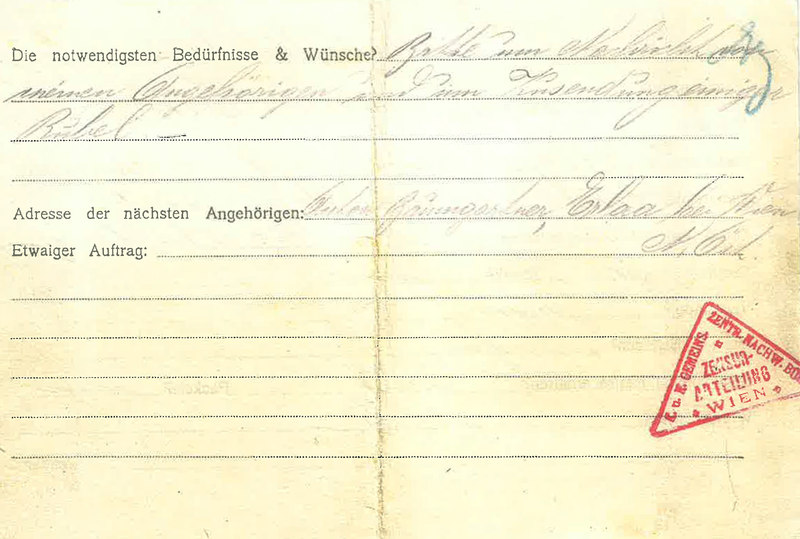 Die notwendigsten Bedürfnisse & Wünsche? Bitte um Nachricht von
meinen Angehörigen und um Zusendung einiger
Rubel —
Adresse der nächsten Angehörigen: Anton Baumgartner, Erlaa bei Wien
Etwaiger Auftrag: N. Öst.
K. u. K. GEMEINS. ZENTR. NACHW.
ZENSUR-
ABTEILUNG
WIEN